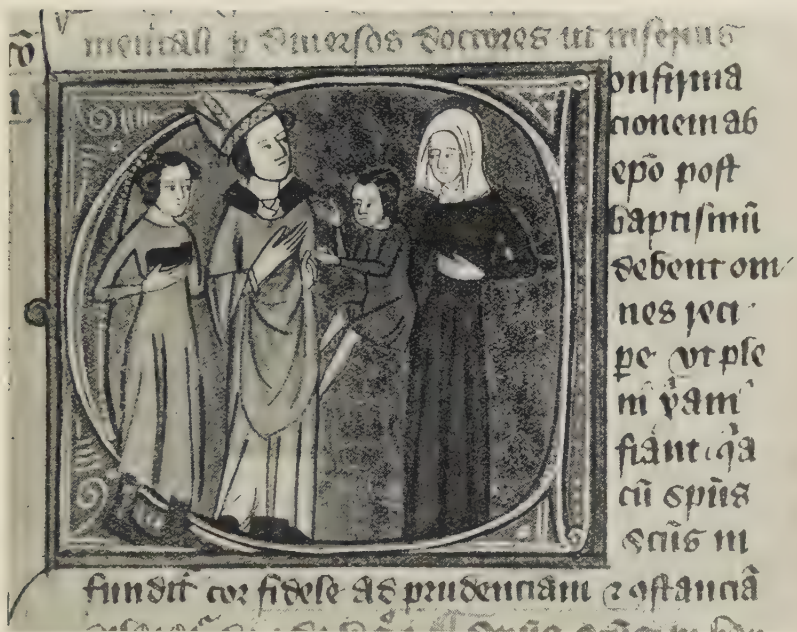 p̱ diuersos doctores ut inferius
onfirma
cionem ab
ep̄o post
baptismū
debent om
nes reci
ꝑe ut ple
ni x̄ani
fiant q̄a
cū sp̄us
sc̄us in
fundit̄ cor fidele ad prudenciam ⁊ ꝯstanciā